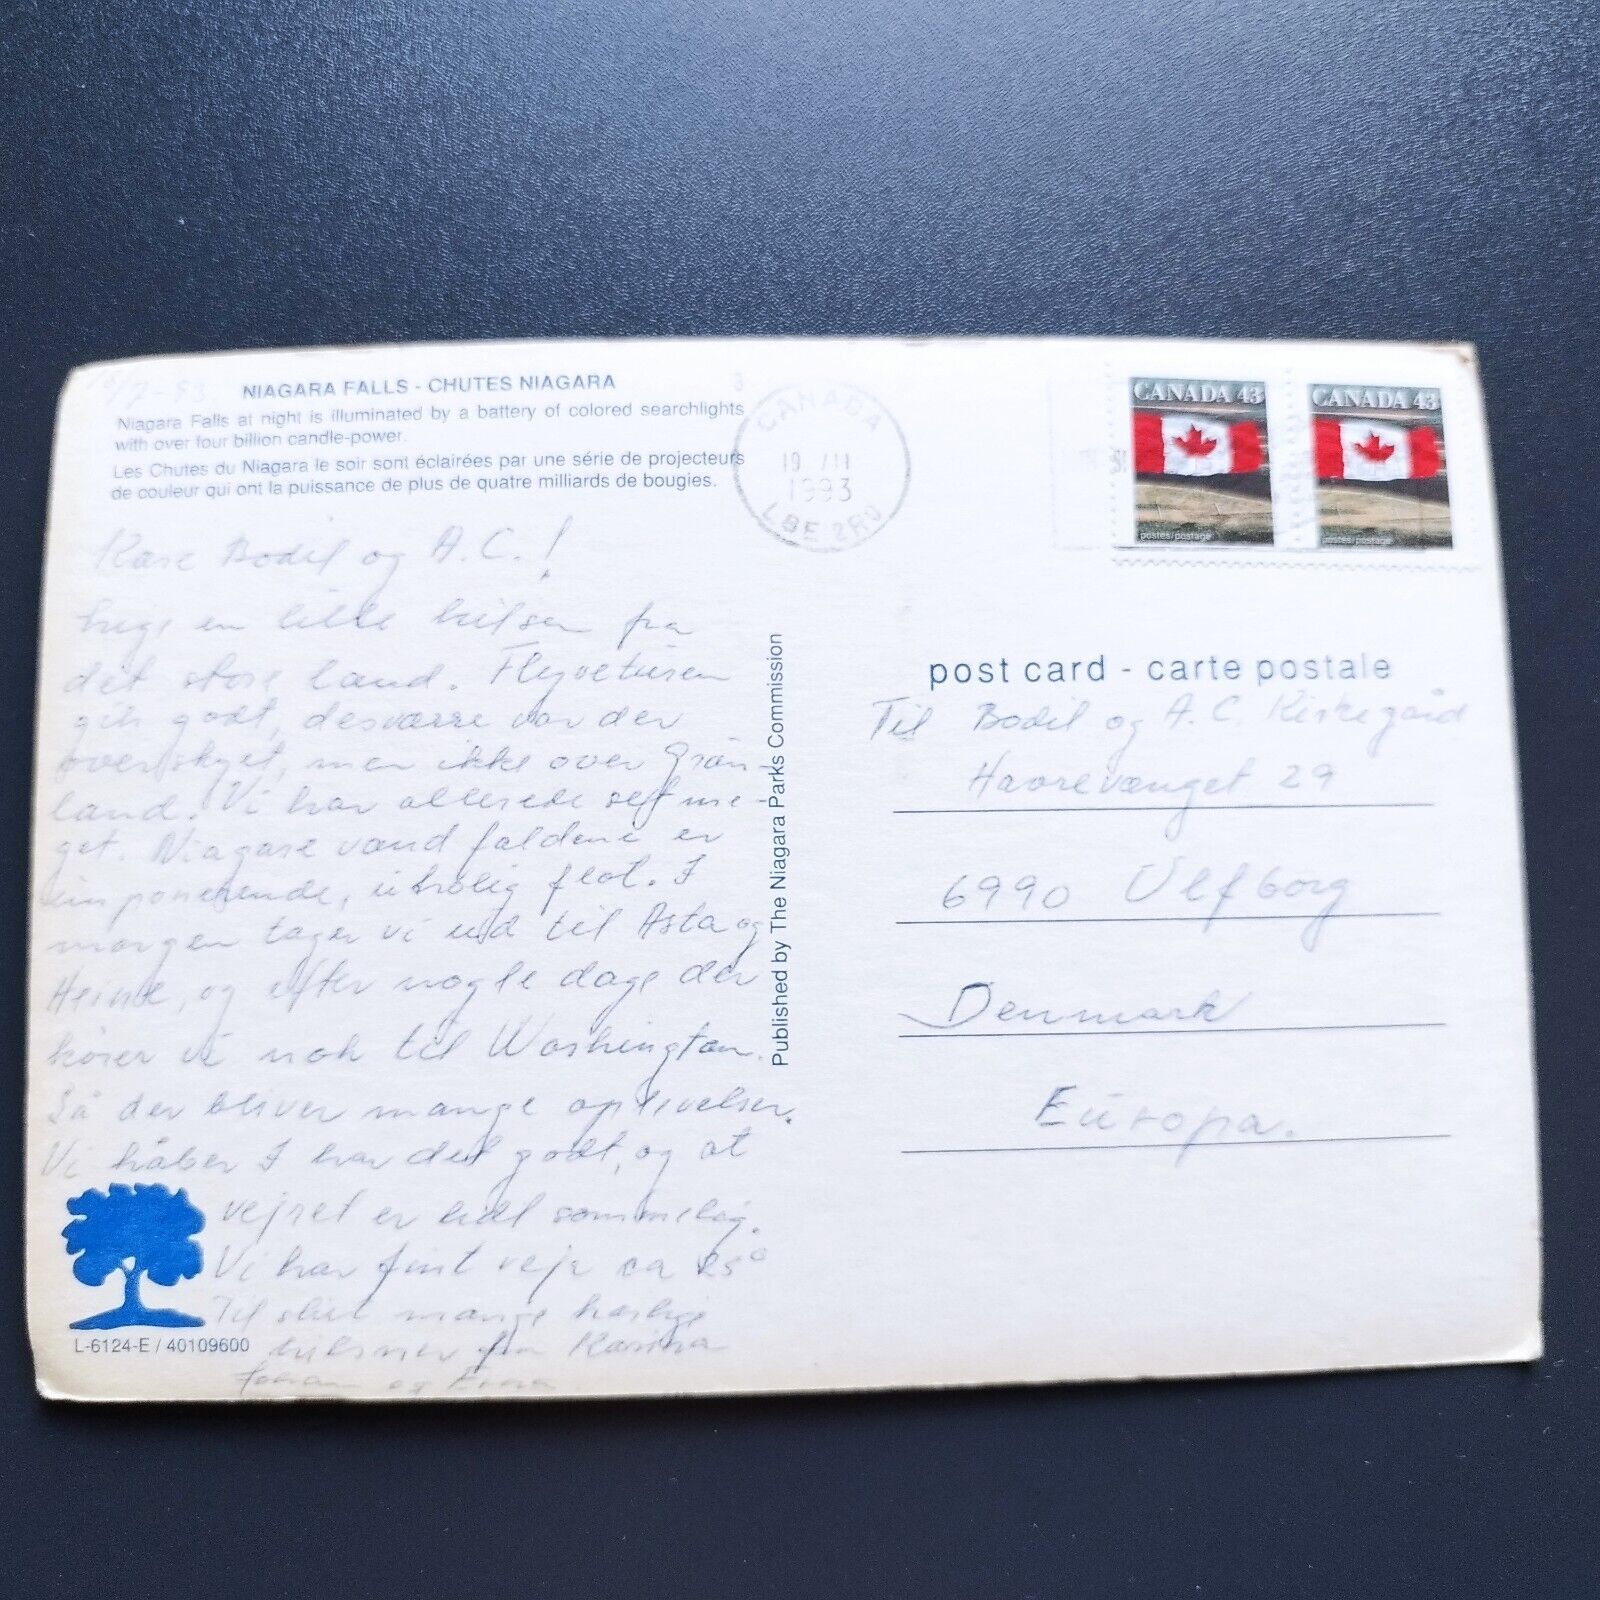 NIAGARA FALLS - CHUTES NIAGARA
Niagara Falls at night is illuminated by a battery of colored searchlights
with over four billion candle-power.
Les Chutes du Niagara le soir sont éclairées par une série de projecteurs
de couleur qui ont la puissance de plus de quatre milliards de bougies.
Kære Bodil og A.C.!
en lille hilsen fra
det store land. Flyveturen
gik godt, desværre var der
overskyet, men ikke over Grøn-
land. Vi har allerede set me-
get. Niagara vandfaldene er
imponerende, utrolig flot. I
morgen tager vi ud til Asta og
Heine, og efter nogle dage der
kører vi nok til Washington.
Så der bliver mange oplevelser.
Vi håber I har det godt, og at
vejret er lidt sommerlig.
Vi har fint vejr ca 25°
Til slut mange kærlige
hilsner fra Karina
og
L-6124-E / 40109600
Published by The Niagara Parks Commission
CANADA
19
1993
L8E 2R0
CANADA 43
postes/postage
CANADA 43
postes/postage
post card - carte postale
Til Bodil og A.C Kirkegård
Haorevænget 29
6990 Ulfborg
Denmark
Europa.